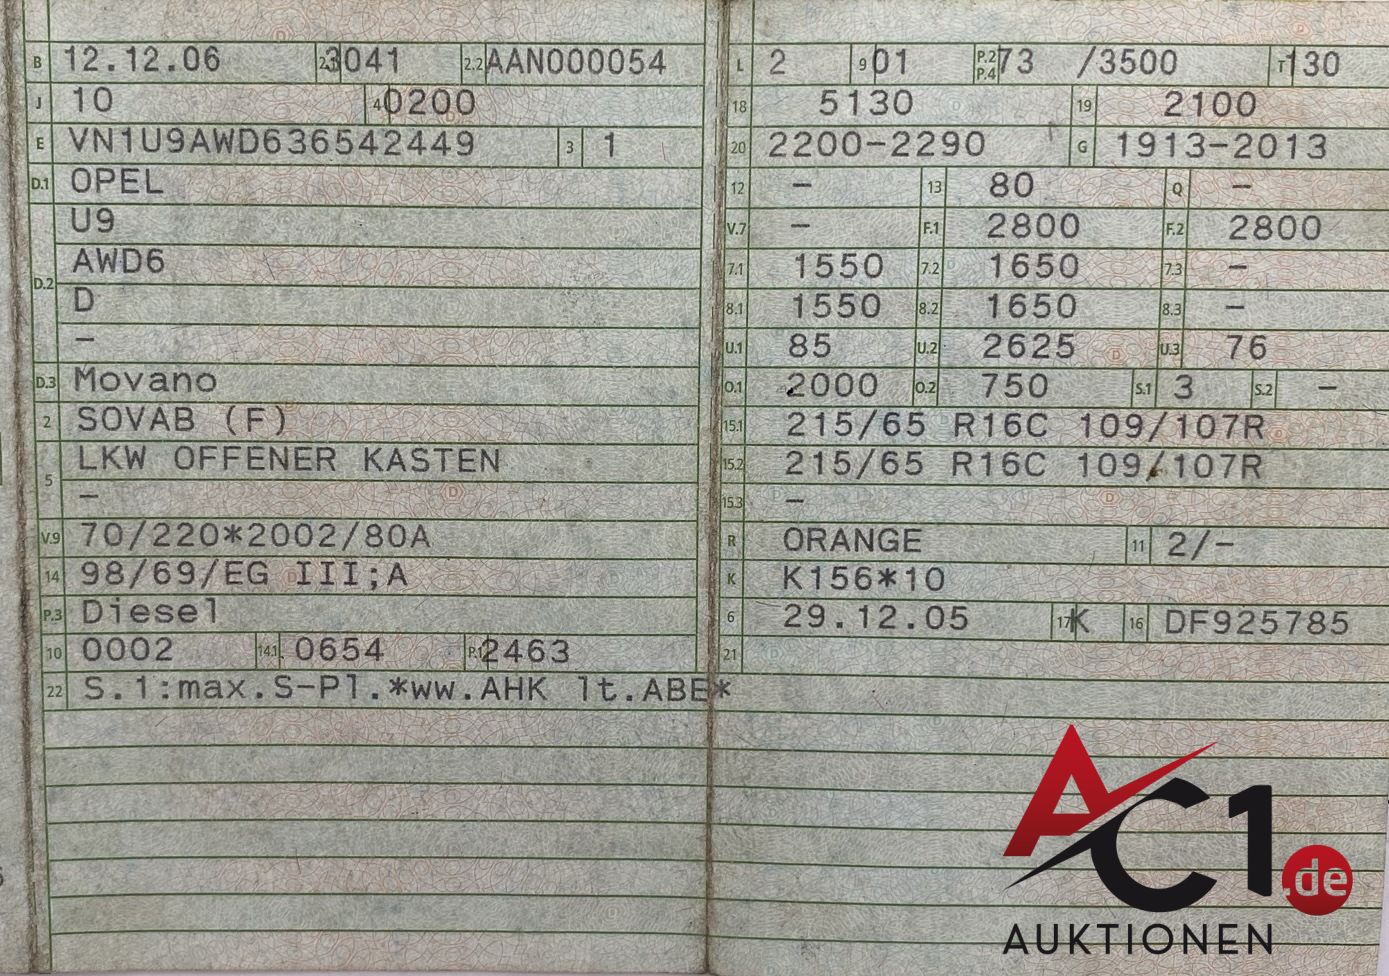 B 12.12.06 2.1 3041 2.2 AAN000054
J 10 4 0200
E VN1U9AWD636542449 3 1
D.1 OPEL
U9
AWD6
D.2 D
–
D.3 Movano
2 SOVAB (F)
LKW OFFENER KASTEN
5 –
V.9 70/220*2002/80A
14 98/69/EG III;A
P.3 Diesel
10 0002 14.1 0654 P.1 2463
22 S.1:max.S-Pl.*ww.AHK lt.ABE*
L 2 9 01 P.2 P.4 73 /3500 T 130
18 5130 19 2100
20 2200-2290 G 1913-2013
12 – 13 80 Q –
V.7 – F.1 2800 F.2 2800
7.1 1550 7.2 1650 7.3 –
8.1 1550 8.2 1650 8.3 –
U.1 85 U.2 2625 U.3 76
O.1 2000 O.2 750 S.1 3 S.2 –
15.1 215/65 R16C 109/107R
15.2 215/65 R16C 109/107R
15.3 –
R ORANGE 11 2/-
K K156*10
6 29.12.05 17 K 16 DF925785
21
AC1.de
AUKTIONEN